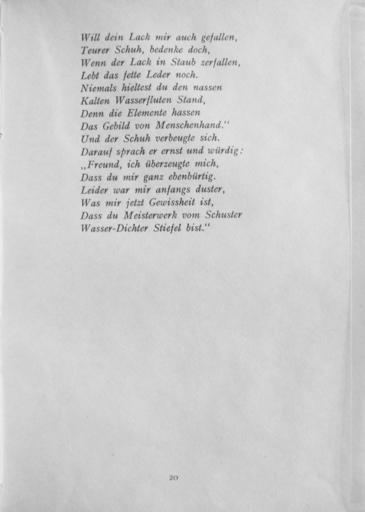 Will dein Lack mir auch gefallen,
Teurer Schuh, bedenke doch,
Wenn der Lack in Staub zerfallen,
Lebt das fette Leder noch.
Niemals hieltest du den nassen
Kalten Wasserfluten Stand,
Denn die Elemente hassen
Das Gebild von Menschenhand.“
Und der Schuh verbeugte sich.
Darauf sprach er ernst und würdig:
„Freund, ich überzeugte mich,
Dass du mir ganz ebenbürtig.
Leider war mir anfangs duster,
Was mir jetzt Gewissheit ist,
Dass du Meisterwerk vom Schuster
Wasser-Dichter Stiefel bist.“
20